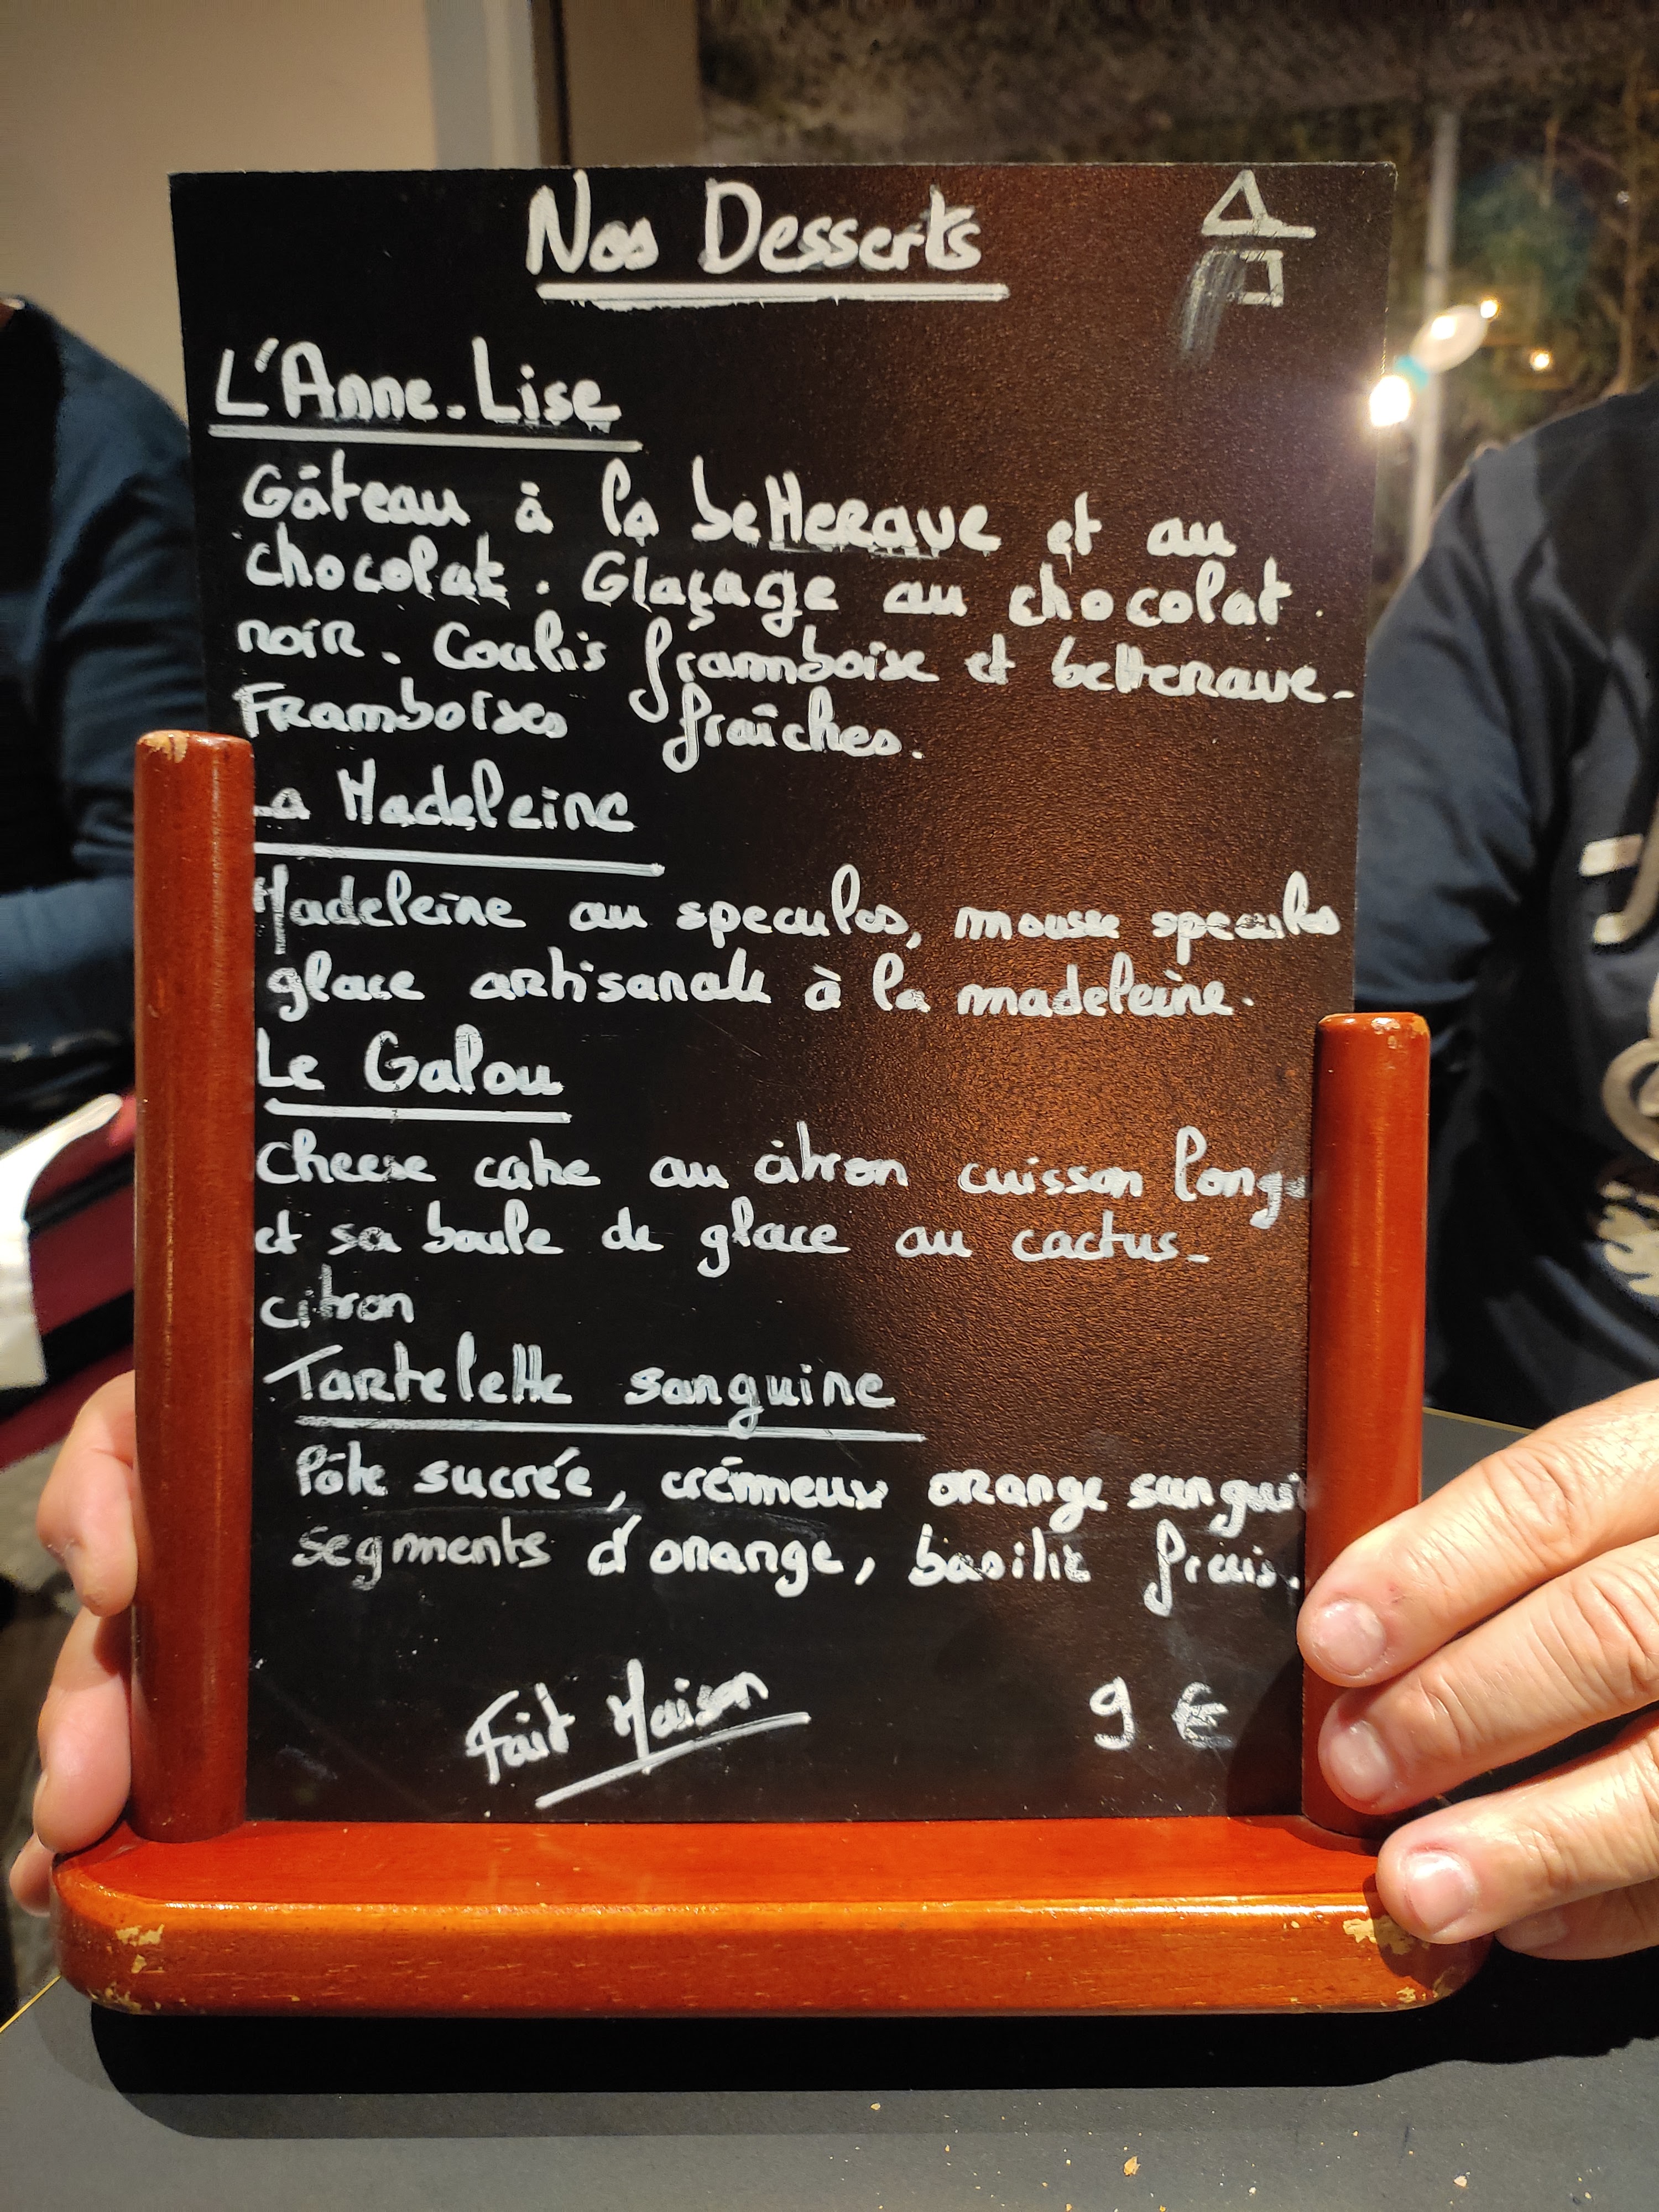 Nos Desserts
L'Anne-Lise
Gâteau à la betterave et au
chocolat. Glaçage au chocolat
noir. Coulis framboise et betterave-
Framboises fraîches.
La Madeleine
Madeleine au speculos, mousse speculos
glace artisanale à la madeleine.
Le Galou
Cheese cake au citron cuisson longue
et sa boule de glace au cactus-
citron
Tartelette sanguine
Pâte sucrée, crémeux orange sangui
segments d'orange, basilic frais.
Fait Maison
9 €